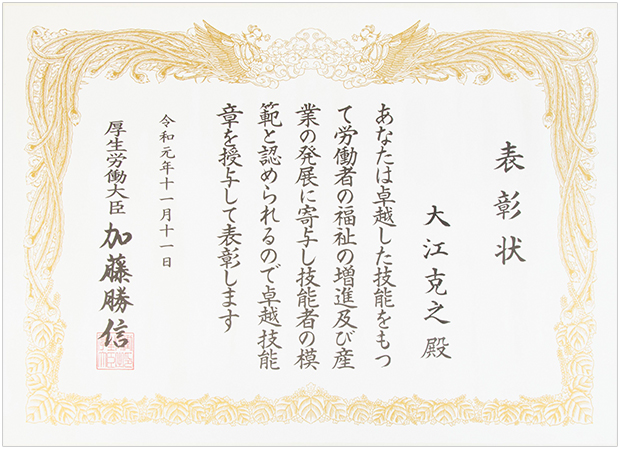 表彰状
大江克之殿
あなたは卓越した技能をもつ
て労働者の福祉の増進及び産
業の発展に寄与し技能者の模
範と認められるので卓越技能
章を授与して表彰します
令和元年十一月十一日
厚生労働大臣 加藤勝信